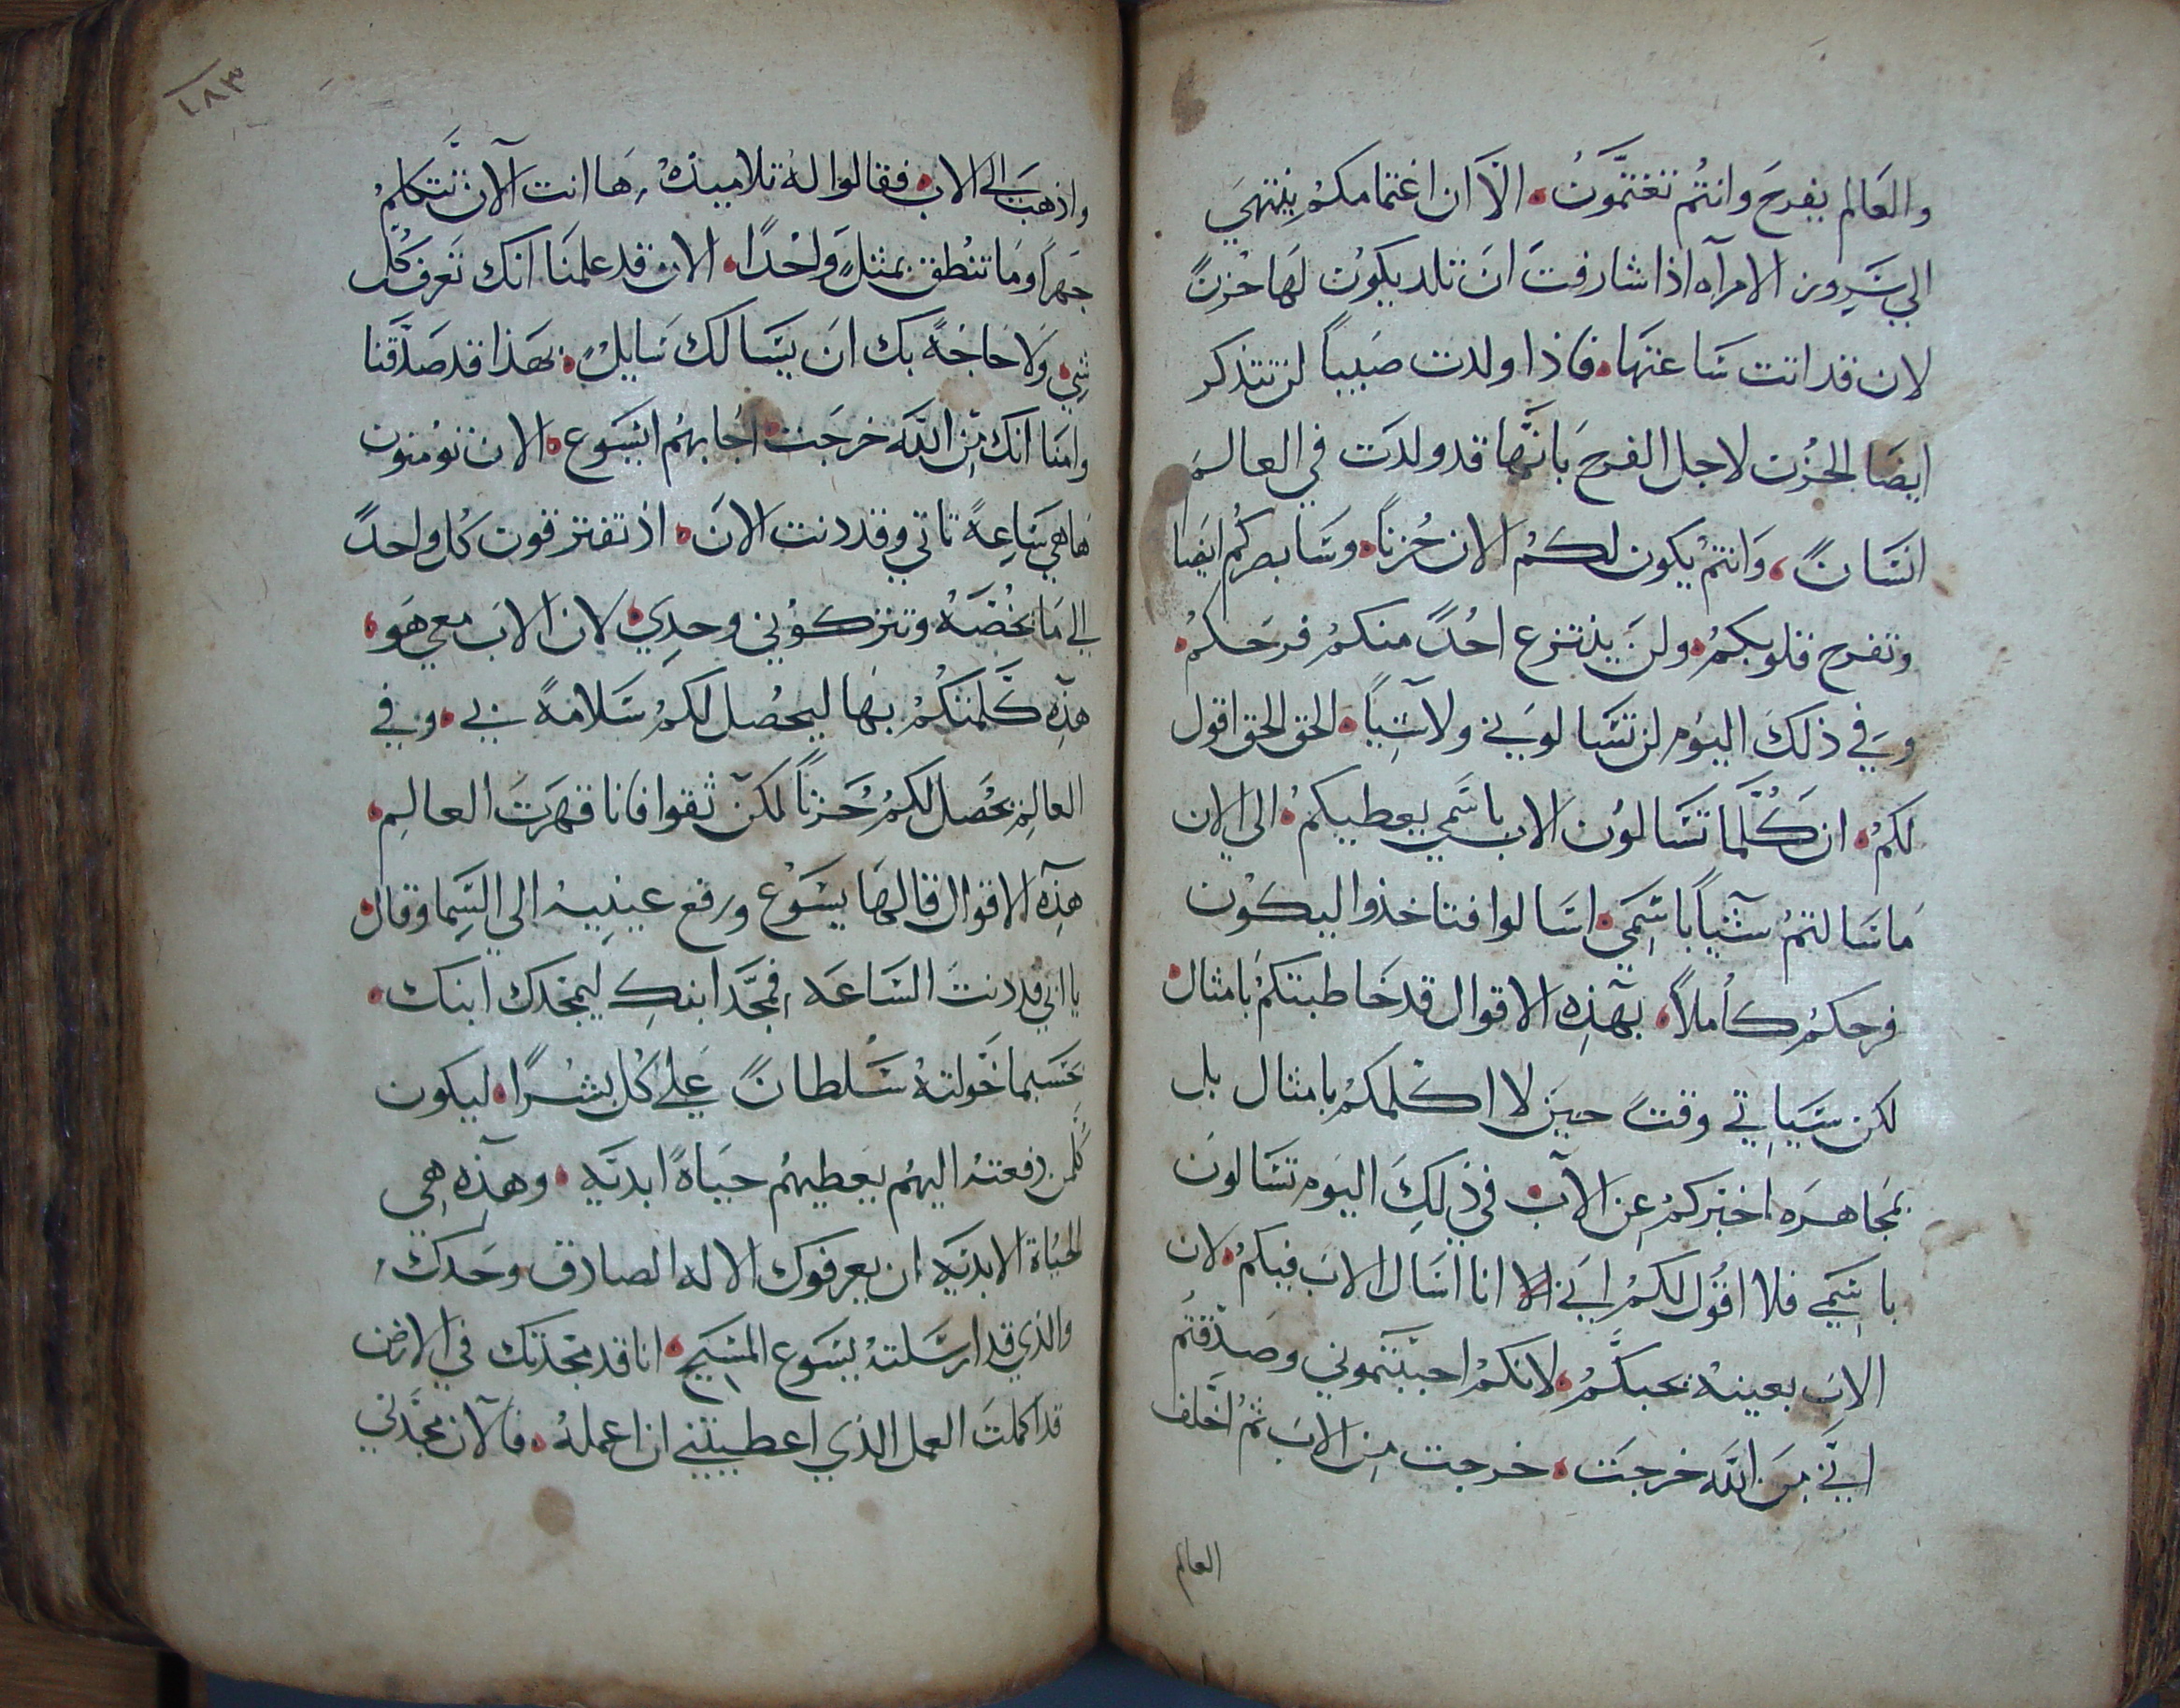 والعالم يفرح وانتم تغتمون الا ان اغتمامكم ينتهي
الي سرور الامراه اذا شارفت ان تلد يكون لها حزن
لان قد اتت ساعتها فاذا ولدت صبيا لن تتذكر
ايضا الحزن لاجل الفرح بانها قد ولدت في العالم
انسان وانتم يكون لكم الان حزنا وسابصركم ايضا
وتفرح قلوبكم ولن ينتزع احد منكم فرحكم
وفي ذلك اليوم لن تسالوني ولا شيا الحق الحق اقول
لكم ان كلما تسالون الاب باسمي يعطيكم الي الان
ما سالتم شيا باسمي اسالوا فتاخذوا ليكون
فرحكم كاملا بهذه الاقوال قد خاطبتكم بامثال
لكن سياتي وقت حين لا اكلمكم بامثال بل
بمجاهره اخبركم عن الاب في ذلك اليوم تسالون
باسمي فلا اقول لكم انني انا اسال الاب فيكم لان
الاب بعينه يحبكم لانكم احببتموني وصدقتم
انني من الله خرجت خرجت من الاب ثم اخلف
العالم
١٨٣
واذهب الي الاب فقالوا له تلاميذه ها انت الان تتكلم
جهرا وما تنطق بمثل واحدا الان قد علمنا انك تعرف كل
شي ولا حاجة بك ان يسالك سايل بهذا قد صدقنا
وامنا انك من الله خرجت اجابهم ايسوع الان تومنون
ها هي ساعة تاتي وقد دنت الان اذ تفترقون كل واحد
الي ما يخصه وتتركوني وحدي لان الاب معي هو
هذه كلمتكم بها ليحصل لكم سلامة بي وفي
العالم يحصل لكم حزنا لكن ثقوا فانا قهرت العالم
هذه الاقوال قالها يسوع ورفع عينيه الي السما وقال
يا ابي قد دنت الساعه فمجد ابنك ليمجدك ابنك
حسبما خولته سلطان علي كل بشرا ليكون
كلمن دفعته اليهم يعطيهم حياة ابديه وهذه هي
الحياة الابديه ان يعرفوك الاله الصادق وحدك
والذي قد ارسلته يسوع المسيح انا قد مجدتك في الارض
قد اكملت العمل الذي اعطيتني ان اعمله فالان مجدني